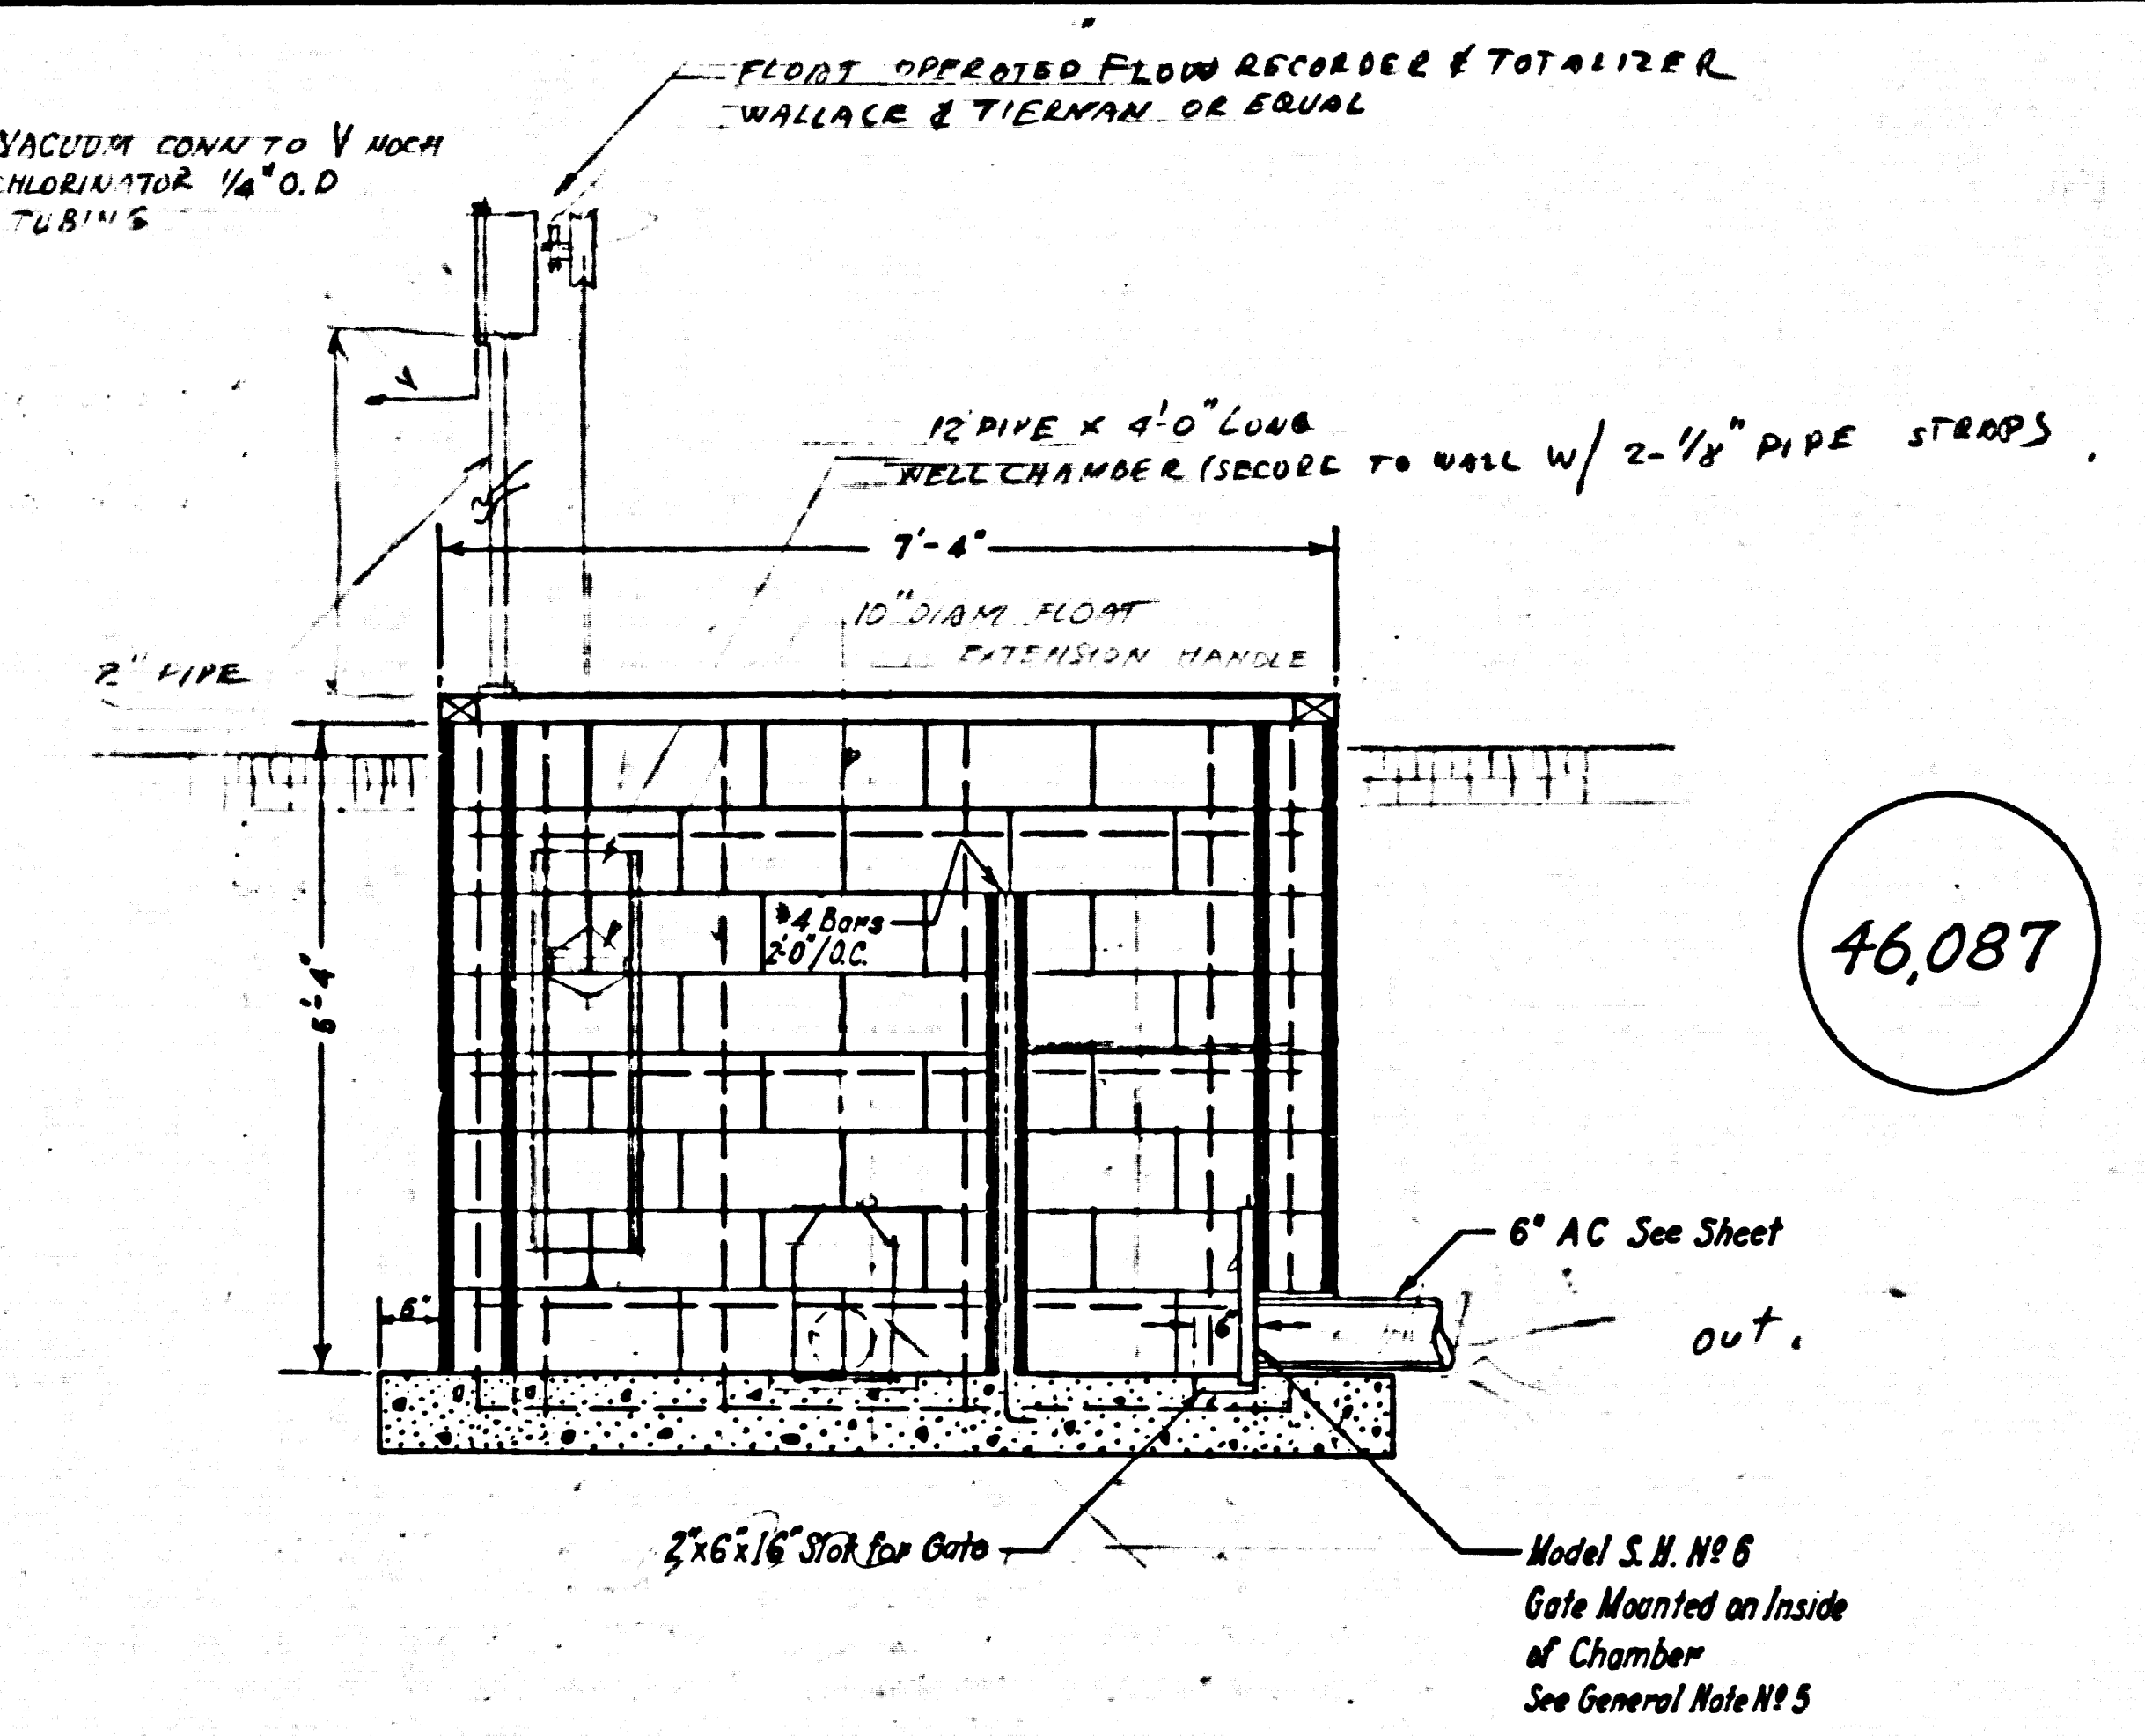 FLOAT OPERATED FLOW RECORDER & TOTALIZER
WALLACE & TIERNAN OR EQUAL
VACUUM CONN TO V NOCH
CHLORINATOR 1/4" O.D
TUBING
12 PIPE x 4'-0" LONG
WELL CHAMBER (SECURE TO WALL W/ 2-1/8" PIPE STRAPS
7'-4"
10" DIAM FLOAT
EXTENSION HANDLE
2" PIPE
#4 Bars
2'-0"/O.C.
46,087
5'-4"
6" AC See Sheet
6"
6"
out.
2"x6"x16" Slot for Gate
Model S.H. Nº 6
Gate Mounted on Inside
of Chamber
See General Note Nº 5